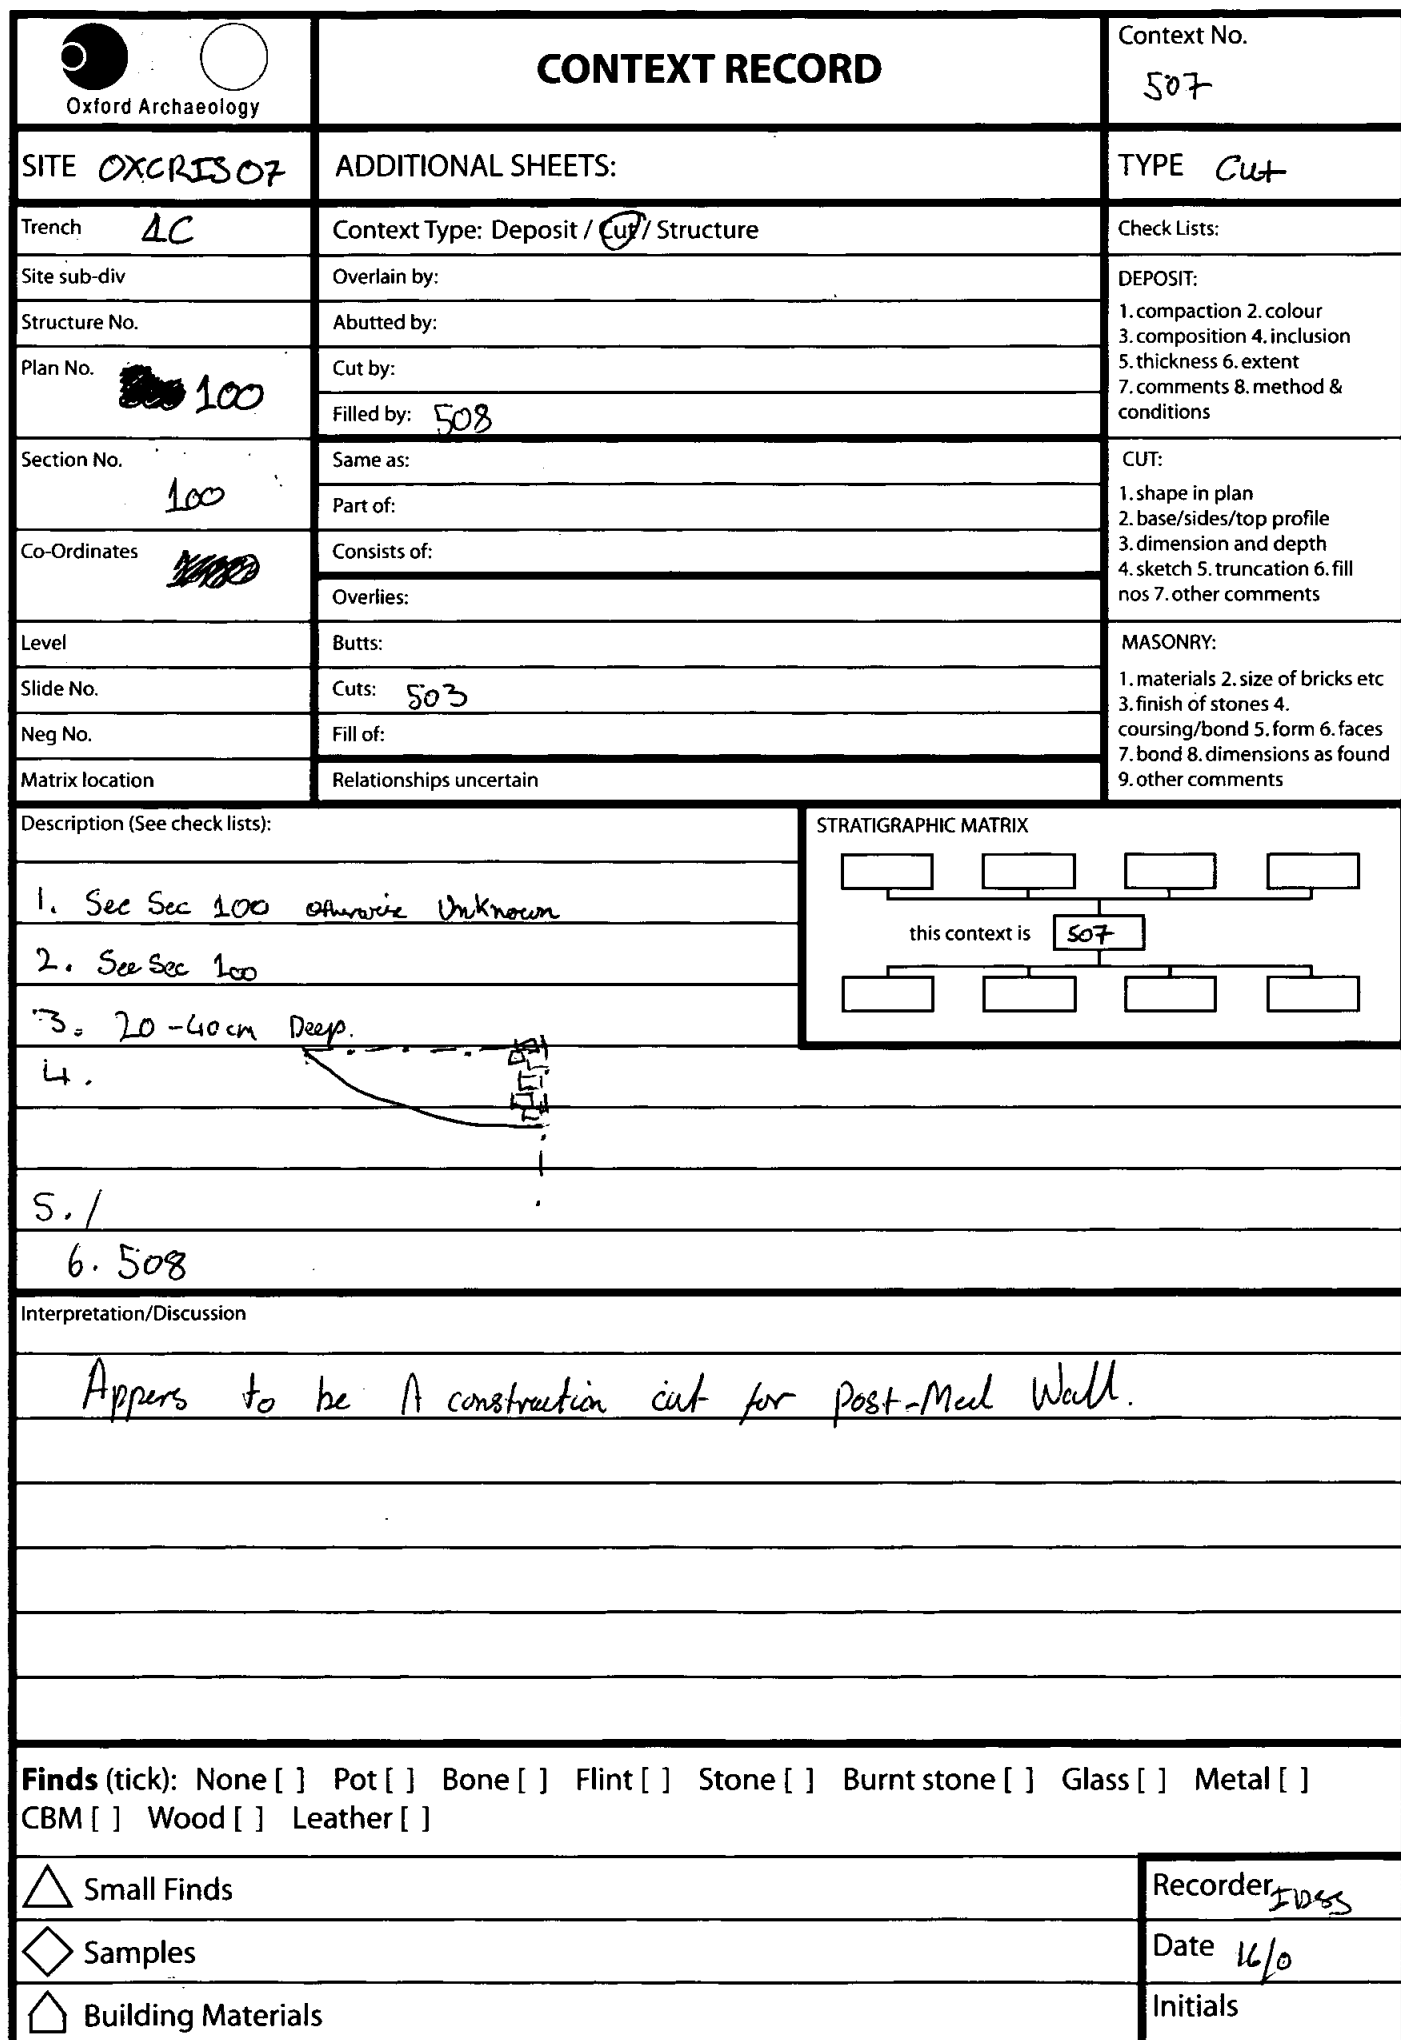 Oxford Archaeology
CONTEXT RECORD
Context No.
507
SITE OXCRIS07
ADDITIONAL SHEETS:
TYPE Cut
Trench 1C
Context Type: Deposit / Cut / Structure
Check Lists:
Site sub-div
Overlain by:
Structure No.
Abutted by:
Plan No. 100
Cut by:
Filled by: 508
Section No.
100
Same as:
Part of:
Co-Ordinates
Consists of:
Overlies:
Level
Butts:
Slide No.
Cuts: 503
Neg No.
Fill of:
Matrix location
Relationships uncertain
DEPOSIT:
1. compaction 2. colour
3. composition 4. inclusion
5. thickness 6. extent
7. comments 8. method &
conditions
CUT:
1. shape in plan
2. base/sides/top profile
3. dimension and depth
4. sketch 5. truncation 6. fill
nos 7. other comments
MASONRY:
1. materials 2. size of bricks etc
3. finish of stones 4.
coursing/bond 5. form 6. faces
7. bond 8. dimensions as found
9. other comments
Description (See check lists):
1. See Sec 100 otherwise Unknown
2. See Sec 100
3. 20-40cm Deep.
4.
5. /
6. 508
STRATIGRAPHIC MATRIX
this context is 507
Interpretation/Discussion
Appers to be A construction cut for Post-Med Wall.
Finds (tick): None [ ] Pot [ ] Bone [ ] Flint [ ] Stone [ ] Burnt stone [ ] Glass [ ] Metal [ ]
CBM [ ] Wood [ ] Leather [ ]
Small Finds
Samples
Building Materials
Recorder
Date 16/0
Initials